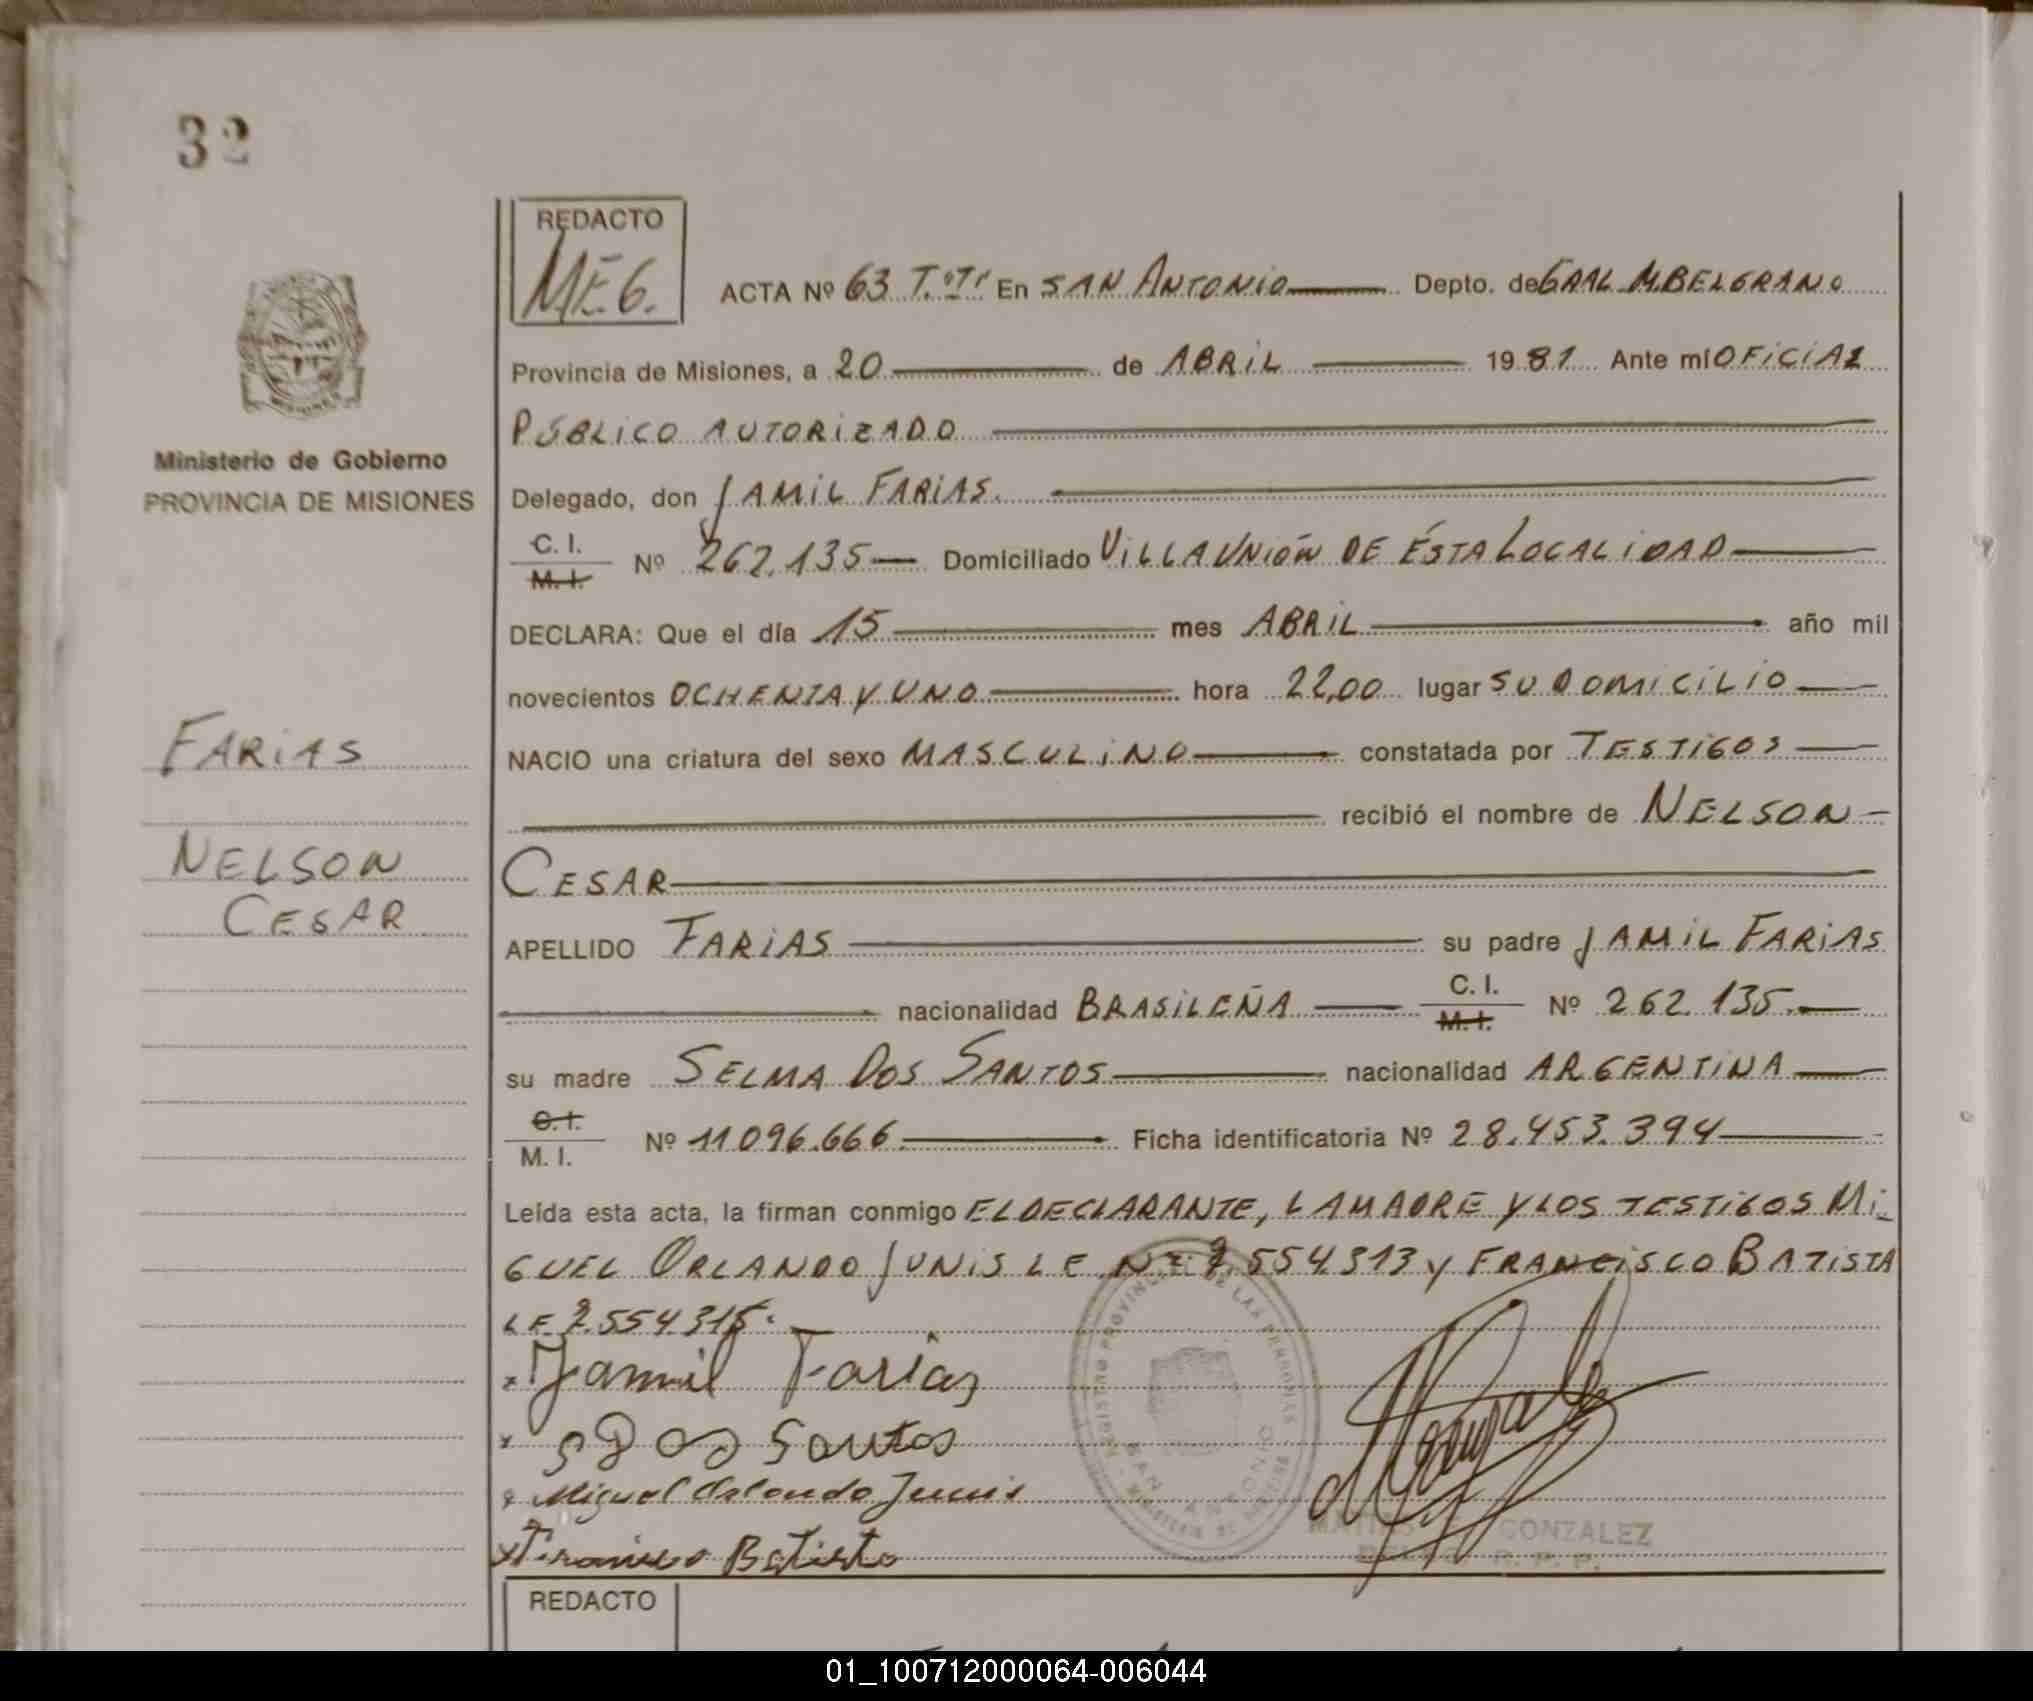 32
REDACTO
M.E.G.
ACTA Nº 63 T.º1º En SAN ANTONIO Depto. de GRAL M.BELGRANO
Provincia de Misiones, a 20 de ABRIL 1981 Ante mí OFICIAL
PÚBLICO AUTORIZADO
Ministerio de Gobierno
PROVINCIA DE MISIONES
Delegado, don JAMIL FARIAS.
C. I.
M. I. Nº 262.135 Domiciliado VILLA UNIÓN DE ÉSTA LOCALIDAD
DECLARA: Que el día 15 mes ABRIL año mil
novecientos OCHENTA Y UNO hora 22,00 lugar SU DOMICILIO
FARIAS
NACIO una criatura del sexo MASCULINO constatada por TESTIGOS
recibió el nombre de NELSON
NELSON
CESAR
CESAR
APELLIDO FARIAS su padre JAMIL FARIAS
nacionalidad BRASILEÑA C. I.
M. I. Nº 262.135.
su madre SELMA DOS SANTOS nacionalidad ARGENTINA
C. I.
M. I. Nº 11.096.666 Ficha identificatoria Nº 28.453.394
Leída esta acta, la firman conmigo EL DECLARANTE, LA MADRE Y LOS TESTIGOS MI-
GUEL ORLANDO JUNIS L E Nº 7.554.313 y FRANCISCO BATISTA
L E 7.554.315.
Jamil Farias
S Dos Santos
Miguel Orlando Junis
Francisco Batista
REGISTRO PROVINCIAL DE LAS PERSONAS
SAN ANTONIO
MINISTERIO DE GOBIERNO
MATIAS GONZALEZ
R. P. P.
REDACTO
01_100712000064-006044